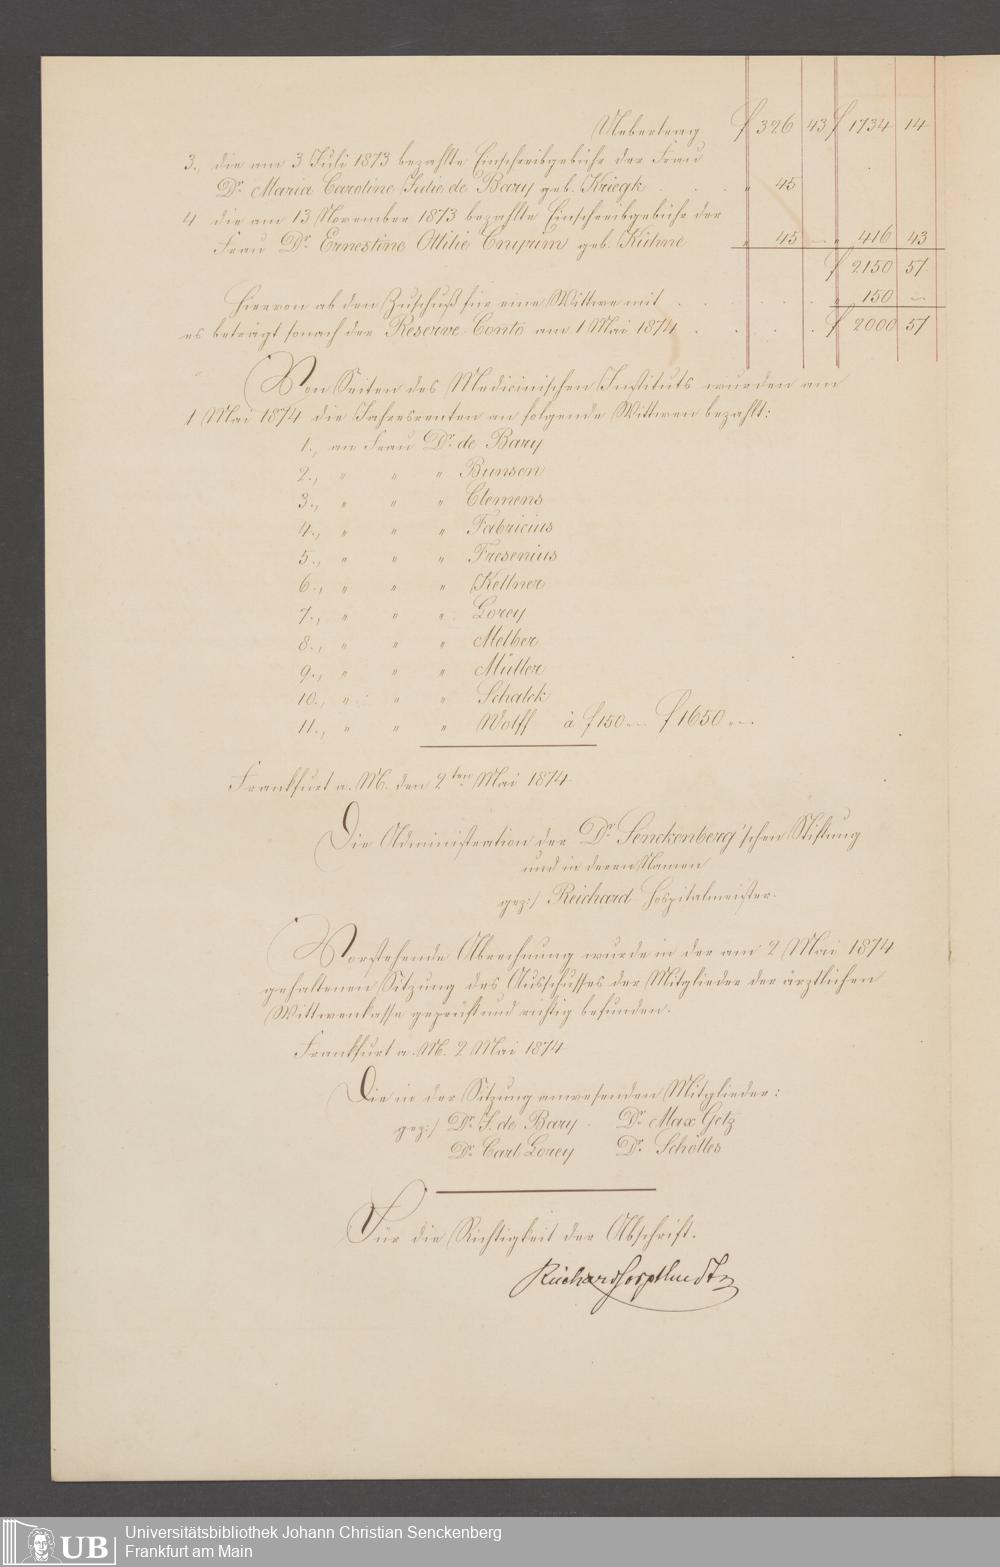 Uebertrag f 326 43 f 1734 14
3., die am 3 Juli 1873 bezahlte Einschreibgebühr der Frau
Dr. Maria Caroline Julie de Bary geb. Kriegk . . . " 45
4 die am 13 November 1873 bezahlte Einschreibgebühr der
Frau Dr. Ernestine Ottilie Cnyrim geb. Kühne " 45 — " 416 43
f 2150 57
Hiervon ab den Zuschuß für eine Wittwe mit . . . . . . " 150 —
es beträgt sonach der Reserve-Conto am 1 Mai 1874 . . . . f 2000 57
Von Seiten des Medicinischen Instituts wurden am
1 Mai 1874 die Jahresrenten an folgende Wittwen bezahlt:
1., an Frau Dr. de Bary
2., " " " Bunsen
3., " " " Clemens
4., " " " Fabricius
5., " " " Fresenius
6., " " " Kellner
7., " " " Lorey
8., " " " Melber
9., " " " Müller
10., " " " Schalck
11., " " " Wolff à f 150 — f 1650 . —
Frankfurt a. M. den 2ten Mai 1874
Die Administration der Dr. Senckenberg'schen Stiftung
und in deren Namen
gez:/ Reichard Hospitalmeister.
Vorstehende Abrechnung wurde in der am 2 Mai 1874
gehaltenen Sitzung des Ausschusses der Mitglieder der ärztlichen
Wittwenkasse geprüft und richtig befunden.
Frankfurt a. M. 2 Mai 1874
Die in der Sitzung anwesenden Mitglieder:
gez:/ Dr. J. de Bary . Dr. Max Getz
Dr. Carl Lorey Dr. Schölles
Für die Richtigkeit der Abschrift.
Reichard
UB Universitätsbibliothek Johann Christian Senckenberg
Frankfurt am Main